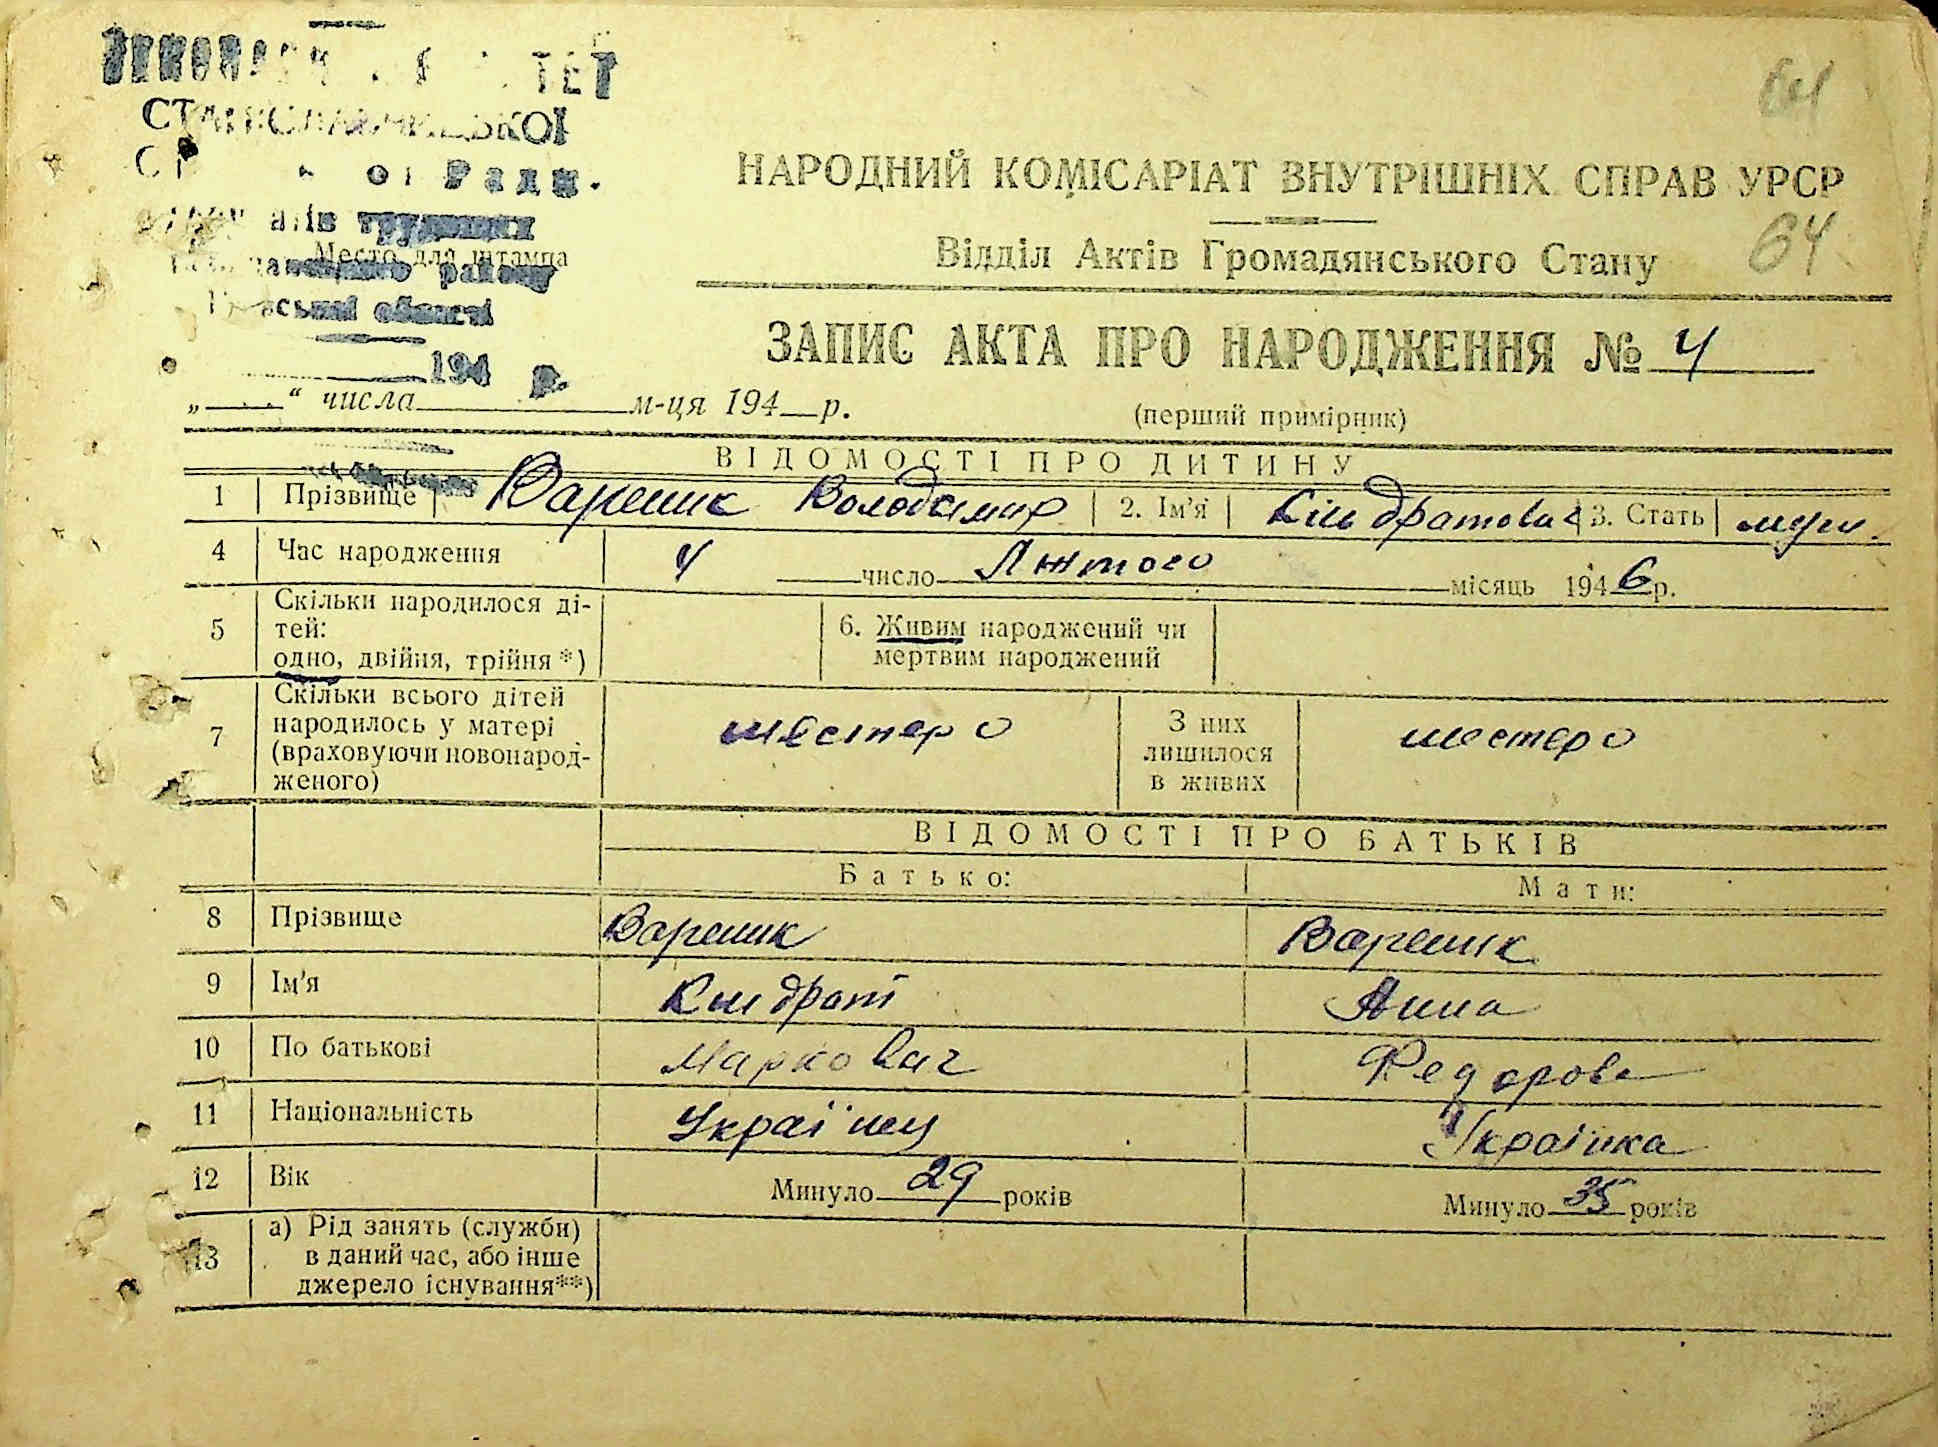 64
НАРОДНИЙ КОМІСАРІАТ ВНУТРІШНІХ СПРАВ УРСР
Відділ Актів Громадянського Стану 64
Место для штампа
області
ЗАПИС АКТА ПРО НАРОДЖЕННЯ № 4
194 р.
„ “ числа м-ця 194 р.
(перший примірник)
ВІДОМОСТІ ПРО ДИТИНУ
1 Прізвище Вареник Володимир 2. Ім'я Кіндратович 3. Стать муж.
4 Час народження 4 число Лютого місяць 1946 р.
5 Скільки народилося ді-
тей:
одно, двійня, трійня*)
6. Живим народжений чи
мертвим народжений
7 Скільки всього дітей
народилось у матері
(враховуючи новонарод-
женого)
шестеро
З них
лишилося
в живих
шестеро
ВІДОМОСТІ ПРО БАТЬКІВ
Батько: Мати:
8 Прізвище Вареник Вареник
9 Ім'я Кіндрат Анна
10 По батькові Маркович Федоровн
11 Національність Українец Українка
12 Вік Минуло 29 років Минуло 35 років
13 а) Рід занять (служби)
в даний час, або інше
джерело існування**)